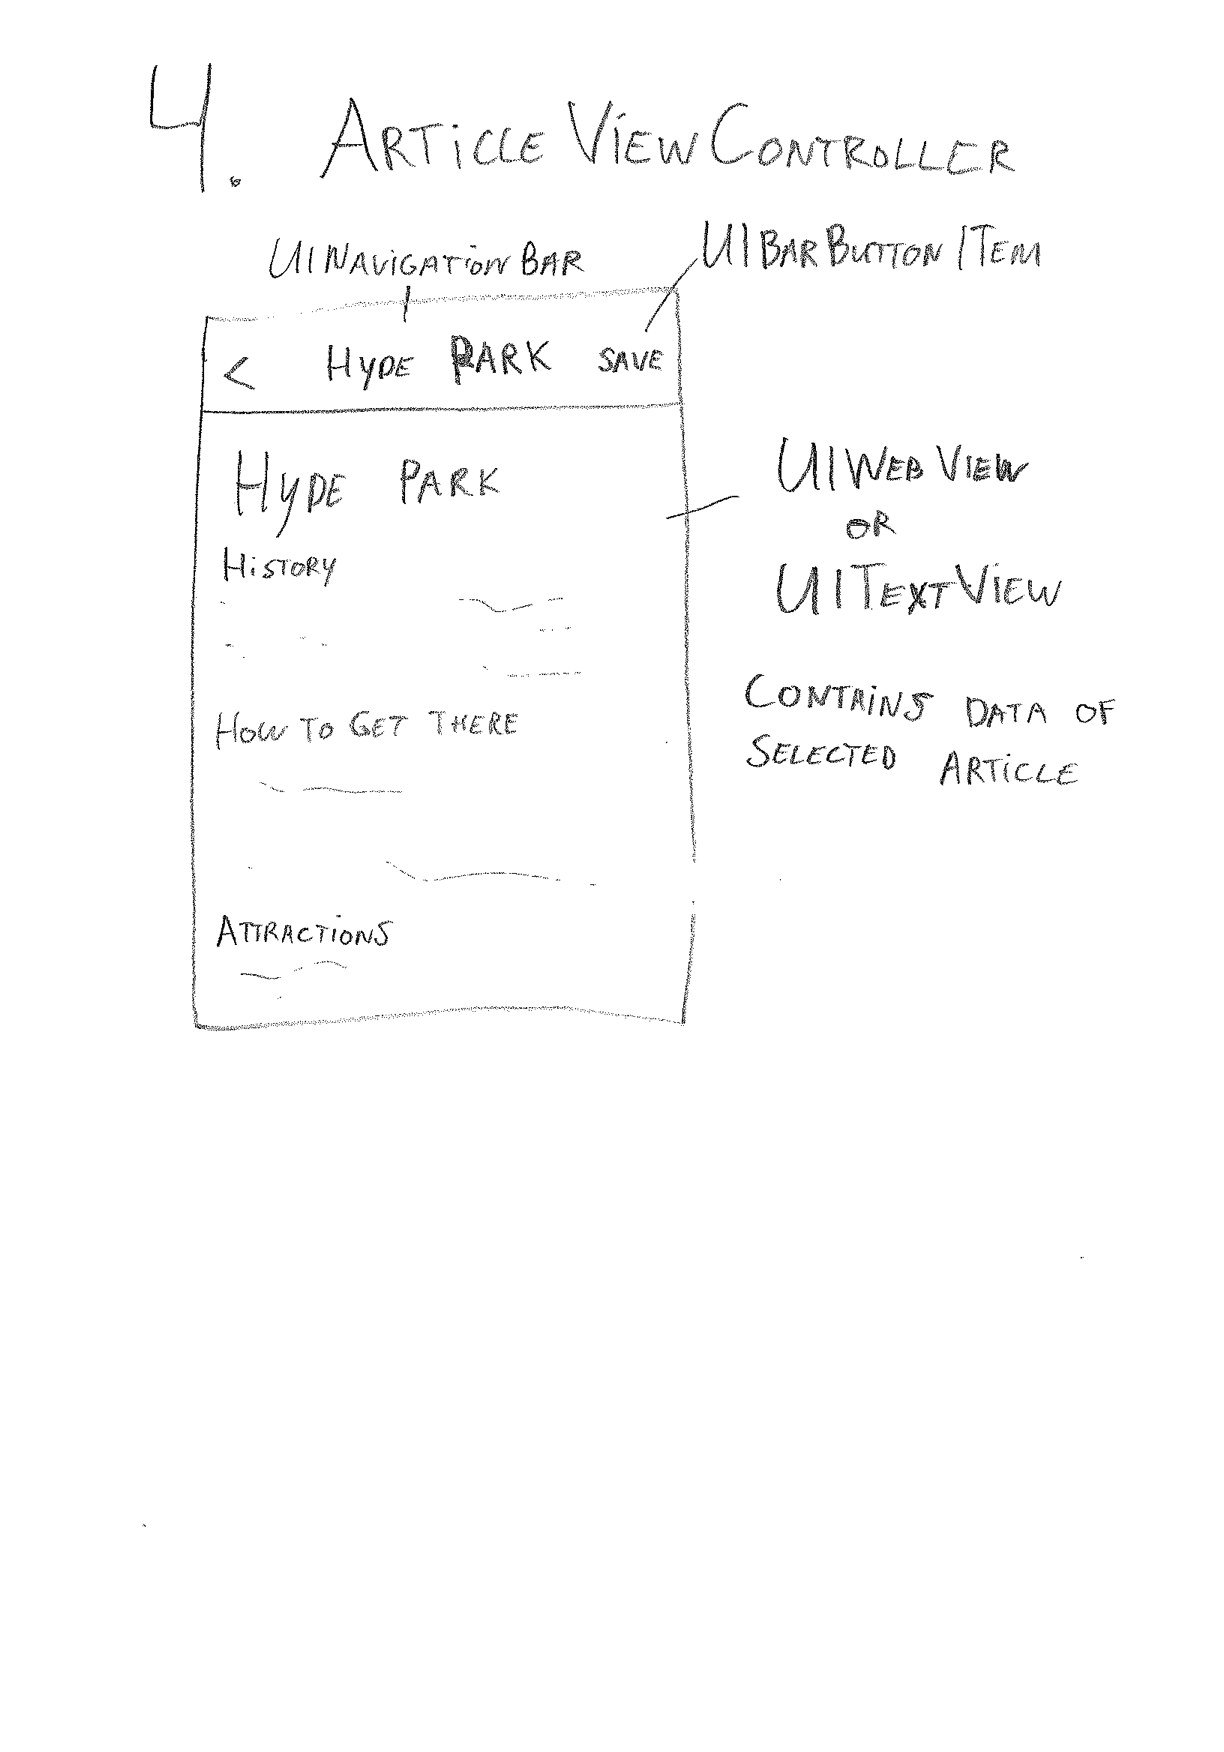 4. ARTiCLE ViEWCONTROLLER
UINAViGATiONBAR
UIBARBUTTONITEM
< HYDE PARK SAVE
HYDE PARK
HiSTORY
HOW TO GET THERE
ATTRACTiONS
UIWEBVIEW
OR
UITEXTViEW
CONTAiNS DATA OF
SELECTED ARTiCLE